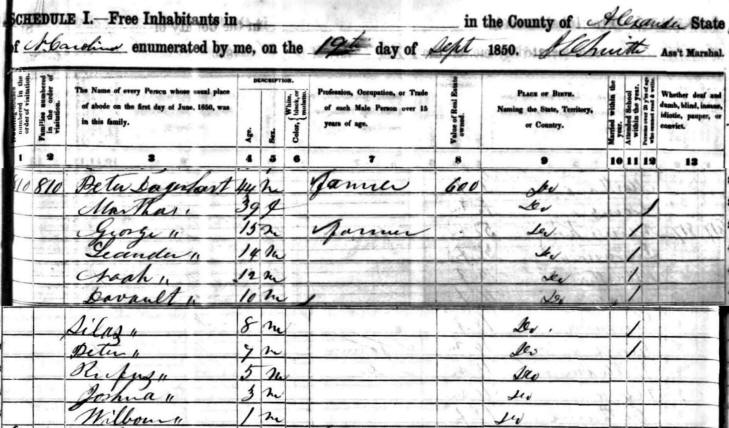 SCHEDULE I.—Free Inhabitants in in the County of Alexander State
of N. Carolina enumerated by me, on the 19th day of Sept 1850. Ass't Marshal.
Families numbered in the order of visitation.
The Name of every Person whose usual place of abode on the first day of June, 1850, was in this family.
DESCRIPTION.
Age.
Sex.
Color, White, black, or mulatto.
Profession, Occupation, or Trade of each Male Person over 15 years of age.
Value of Real Estate owned.
PLACE OF BIRTH. Naming the State, Territory, or Country.
Married within the year.
Attended School within the year.
Whether deaf and dumb, blind, insane, idiotic, pauper, or convict.
1 2 3 4 5 6 7 8 9 10 11 12 13
810 810 Peter Dagenhart 44 m Farmer 600 Do
Martha " 39 f Do /
George " 15 m Farmer Do /
Leander " 14 m Do /
Noah " 12 m Do /
Davault " 10 m Do /
Silas " 8 m Do /
Peter " 7 m Do /
Rufus " 5 m Do
Joshua " 3 m Do
Wilbourn " 1 m Do